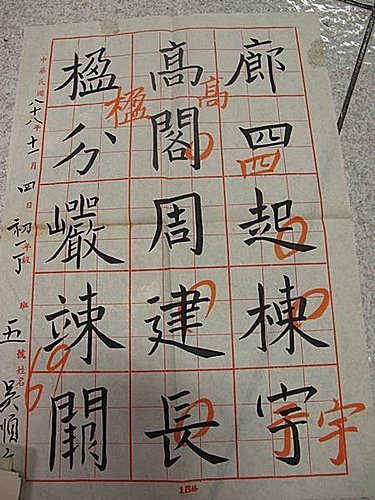 楹分巖竦闕
高閣周建長
廊四起棟宇
楹
高
四
宇
69
中華民國八十六年十一月四日
初一丁 年級 班 五 號 姓名 吳順